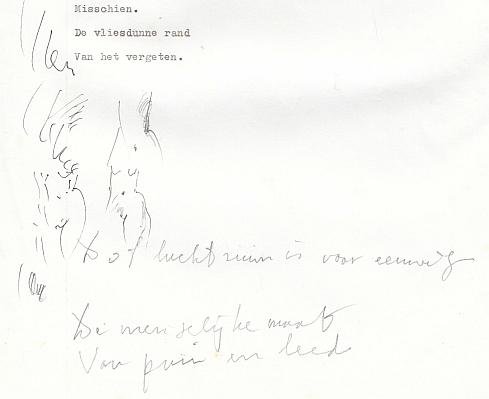 Misschien.
De vliesdunne rand
Van het vergeten.
luchtruim is voor eeuwig
De menselijke maat
Van pijn en leed